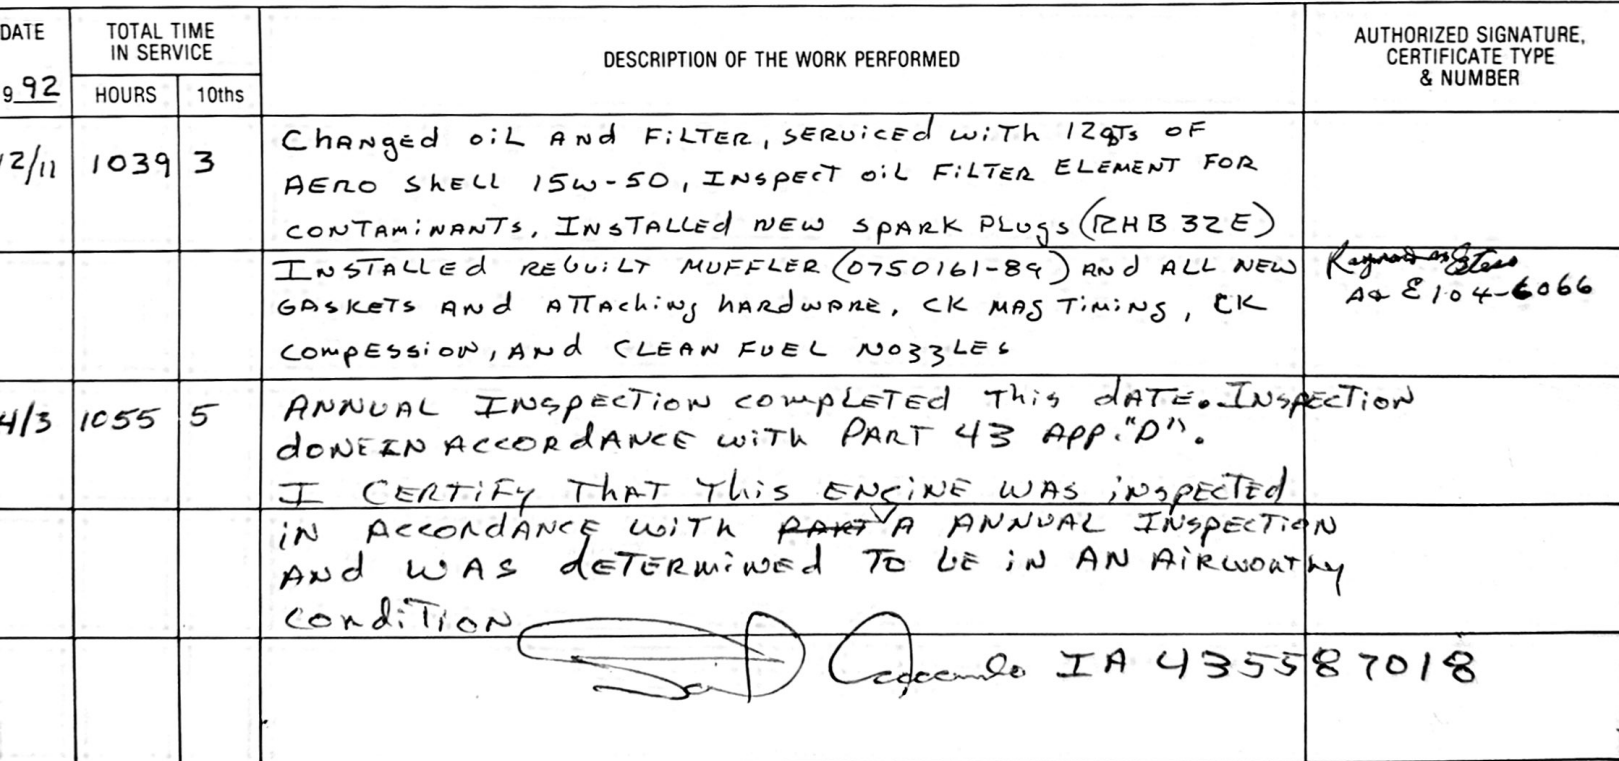 DATE
TOTAL TIME
IN SERVICE
DESCRIPTION OF THE WORK PERFORMED
AUTHORIZED SIGNATURE,
CERTIFICATE TYPE
& NUMBER
9 92
HOURS
10ths
12/11 1039 3
Changed oil AND FilTER, SERViced with 12qTs OF
AERO Shell 15w-50, INSpEcT oil FilTER ELEMENT FOR
CONTAMiNANTS. INSTALLEd NEW SPARK PLUgs (RHB 32E)
INSTALLEd REbUiLT MUFFLER (0750161-89) ANd ALL NEW
GASKETS ANd ATTAching hARdWARE, CK MAg TiMiNg, CK
COMPESSiON, ANd CLEAN FUEL NOzzLES
A& E104-6066
4/3 1055 5
ANNUAL INSpEcTiON completed This dATE. INSpEcTiON
dONE IN AccORdANCE WiTh PART 43 APP. "D".
I CERTiFy ThAT This ENGiNE WAS iNspEcTEd
iN AccORdANCE WiTh PART A ANNUAL INSpEcTiON
ANd WAS dETERMiNEd TO bE iN AN AiRWORThy
CONdiTiON
IA 435587018